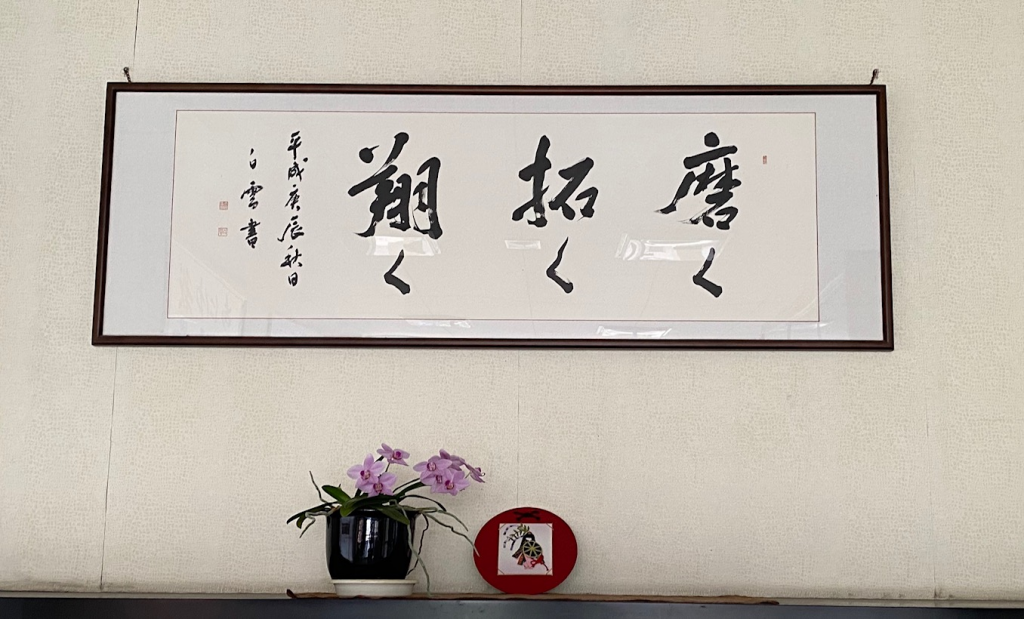 磨く
拓く
翔く
平成庚辰秋日
白雪書